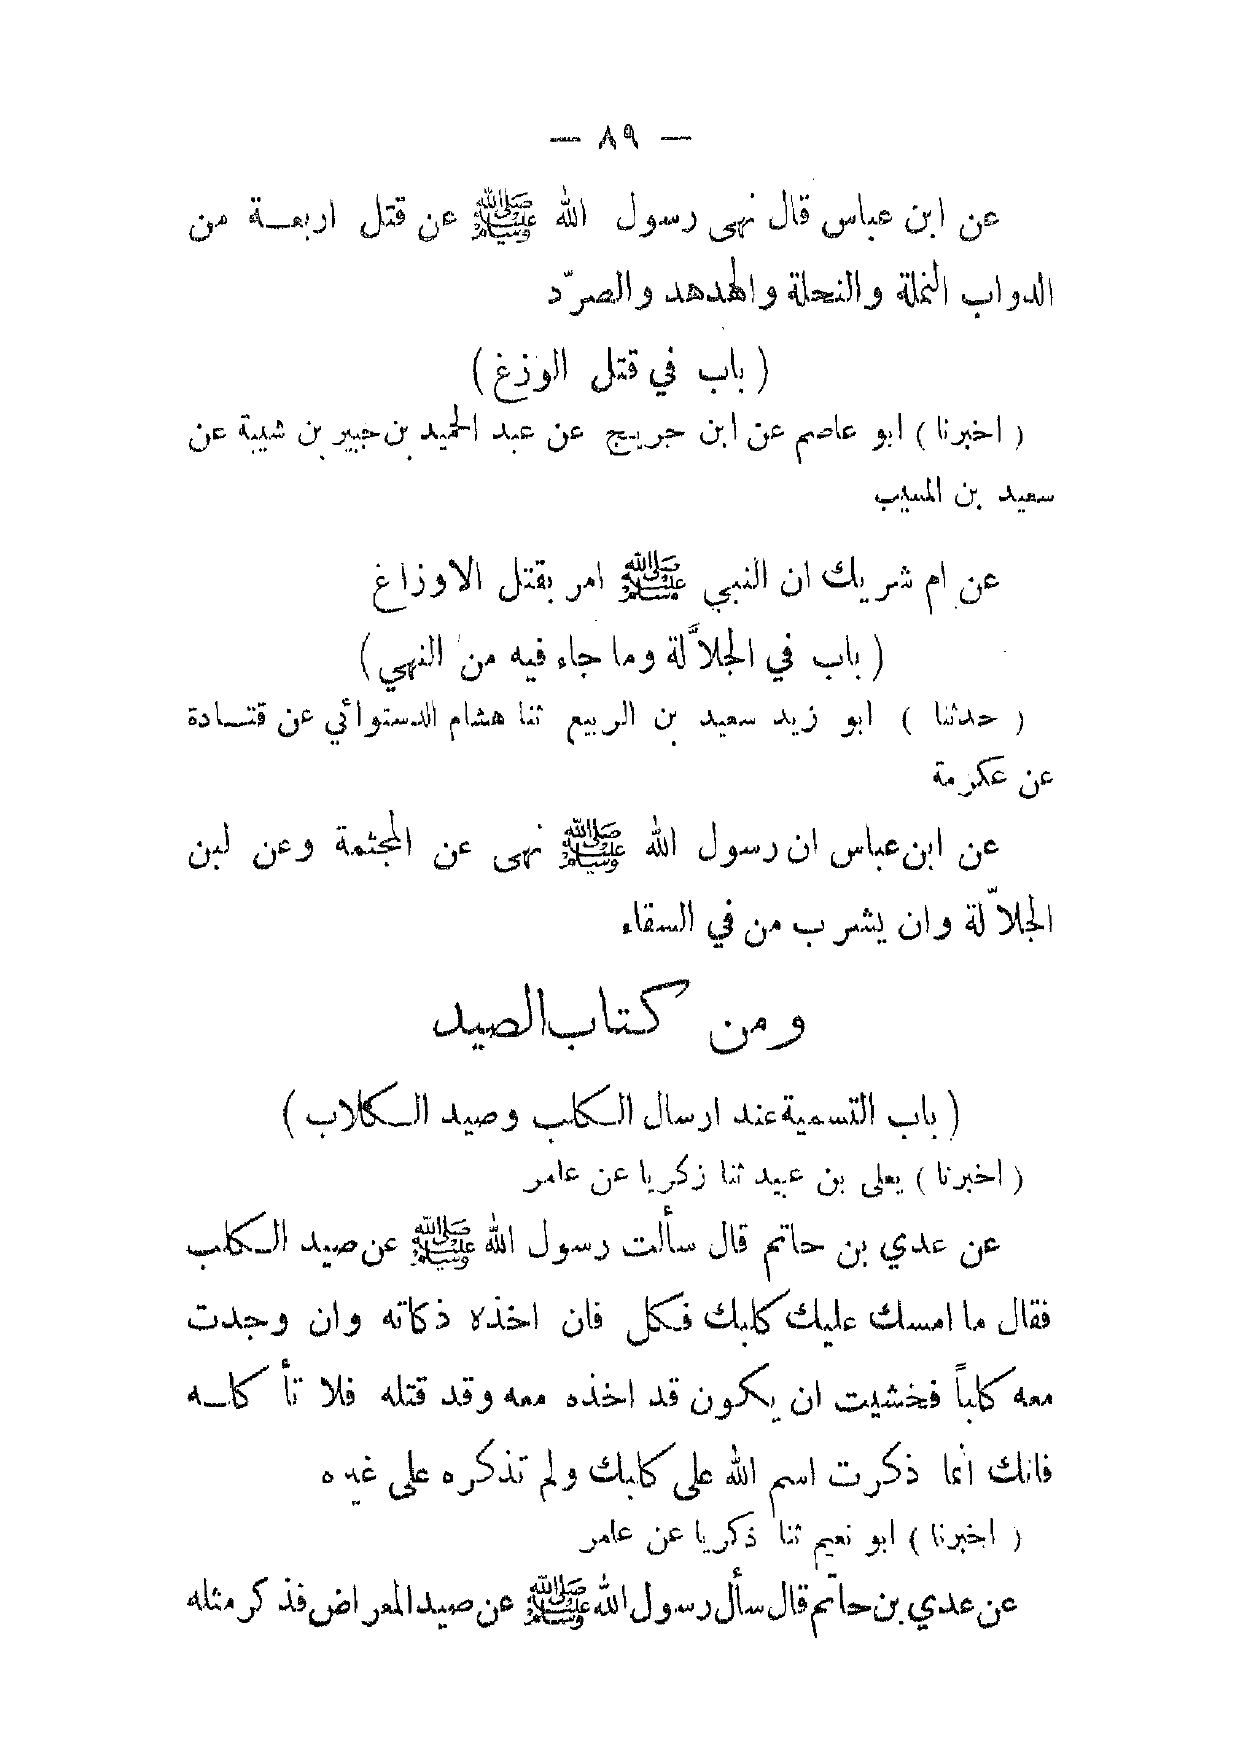 — ٨٩ —
عن ابن عباس قال نهى رسول الله ﷺ عن قتل اربعة من
الدواب النملة والنحلة والهدهد والصرّد
( باب في قتل الوزغ )
( اخبرنا ) ابو عاصم عن ابن جريج عن عبد الحميد بن جبير بن شيبة عن
سعيد بن المسيب
عن ام شريك ان النبي ﷺ امر بقتل الاوزاغ
( باب في الجلاّلة وما جاء فيه من النهي )
( حدثنا ) ابو زيد سعيد بن الربيع ثنا هشام الدستوائي عن قتادة
عن عكرمة
عن ابن عباس ان رسول الله ﷺ نهى عن المجثمة وعن لبن
الجلاّلة وان يشرب من في السقاء
ومن كتاب الصيد
( باب التسمية عند ارسال الكلب وصيد الكلاب )
( اخبرنا ) يعلى بن عبيد ثنا زكريا عن عامر
عن عدي بن حاتم قال سألت رسول الله ﷺ عن صيد الكلب
فقال ما امسك عليك كلبك فكل فان اخذه ذكاته وان وجدت
معه كلباً فخشيت ان يكون قد اخذه معه وقد قتله فلا تأكله
فانك انما ذكرت اسم الله على كلبك ولم تذكره على غيره
( اخبرنا ) ابو نعيم ثنا ذكريا عن عامر
عن عدي بن حاتم قال سأل رسول الله ﷺ عن صيد المعراض فذكر مثله